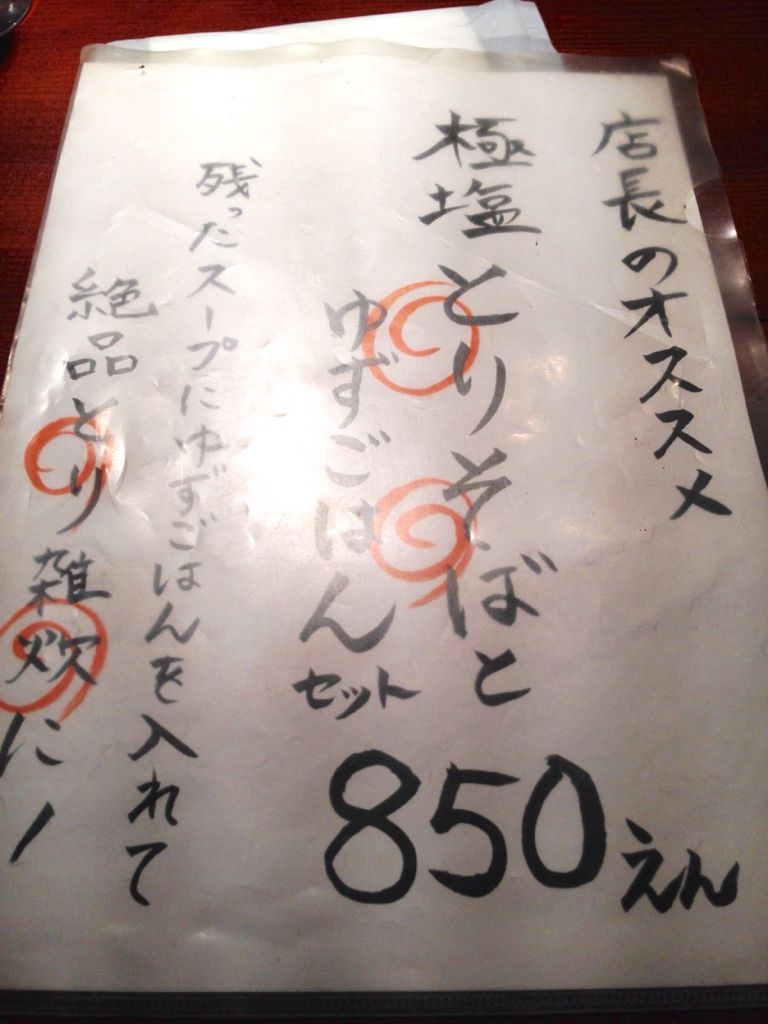 店長のオススメ
極塩とりそばと
ゆずごはんセット
850えん
残ったスープにゆずごはんを入れて
絶品とり雑炊に!